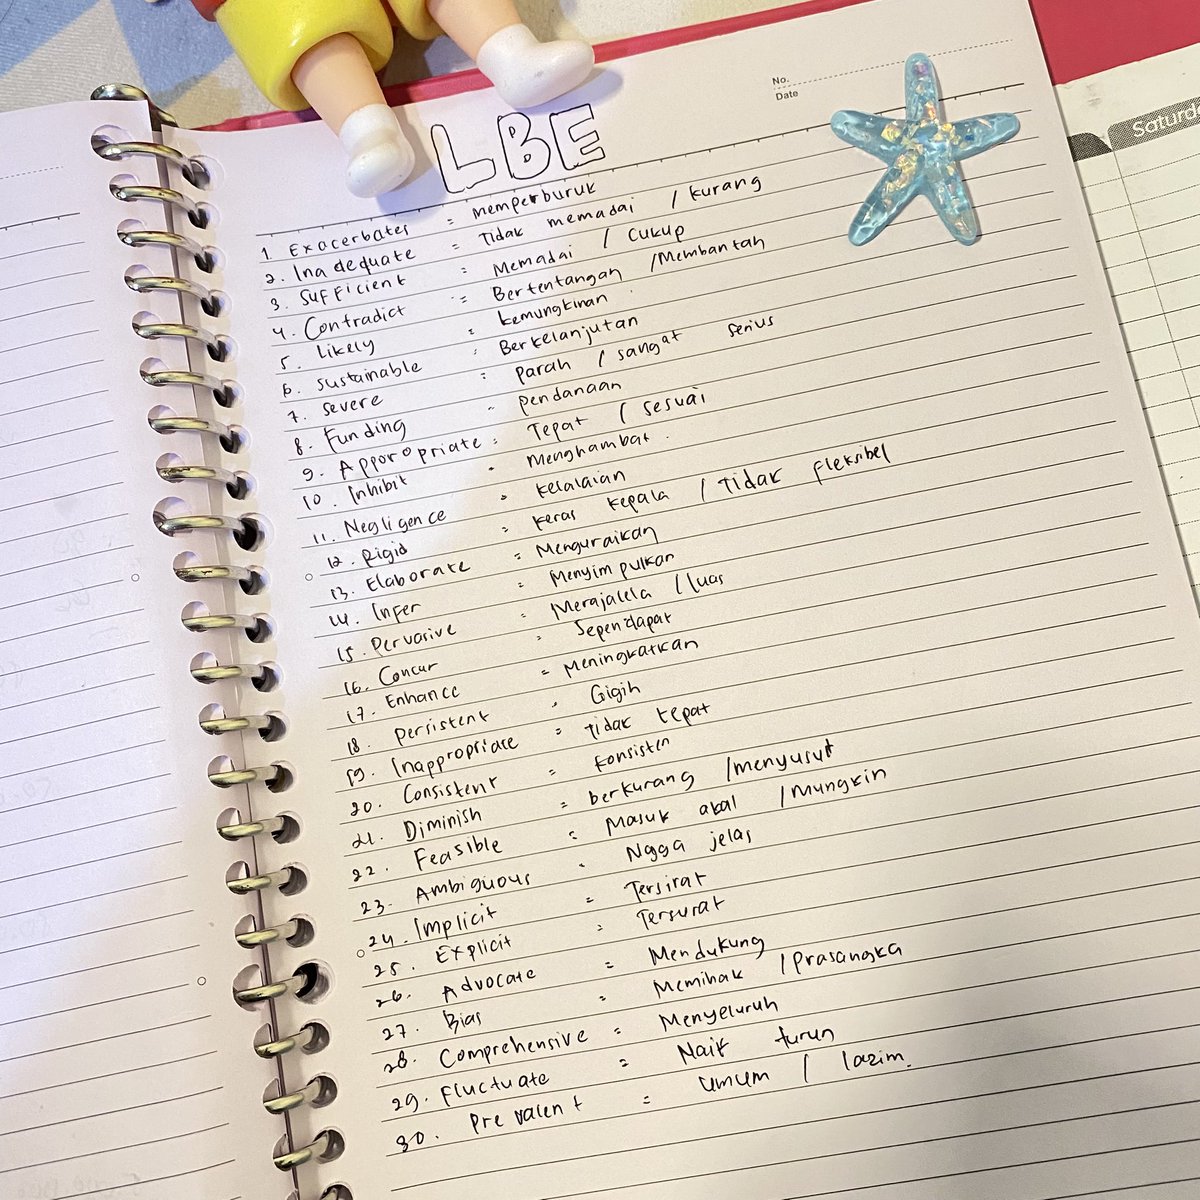 No.
Date
Saturd
LBE
1. Exacerbates = memperburuk
2. Inadequate = Tidak memadai / kurang
3. Sufficient = Memadai / Cukup
4. Contradict = Bertentangan / Membantah
5. Likely = kemungkinan
6. Sustainable = Berkelanjutan
7. Severe = parah / sangat serius
8. Funding = pendanaan
9. Apporopriate = Tepat / sesuai
10. Inhibit = Menghambat
11. Negligence = kelalaian
12. Rigid = keras kepala / Tidak fleksibel
13. Elaborate = Menguraikan
14. Infer = Menyimpulkan
15. Pervasive = Merajalela / luas
16. Concur = Sependapat
17. Enhance = Meningkatkan
18. Persistent = Gigih
19. Inappropriate = Tidak tepat
20. Consistent = konsisten
21. Diminish = berkurang / menyusut
22. Feasible = Masuk akal / Mungkin
23. Ambiguous = Ngga jelas
24. Implicit = Tersirat
25. Explicit = Tersurat
26. Advocate = Mendukung
27. Bias = Memihak / Prasangka
28. Comprehensive = Menyeluruh
29. Fluctuate = Naik turun
30. Prevalent = umum / lazim.